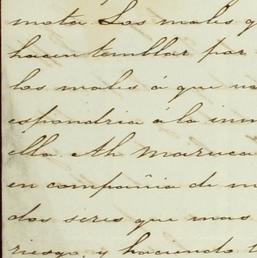 mota Los males q
hacen temblar por
los males á que no
espondria á la inm
ella. Ah Maruca
en compañia de m
dos seres que mas
riesgo, y haciendo t